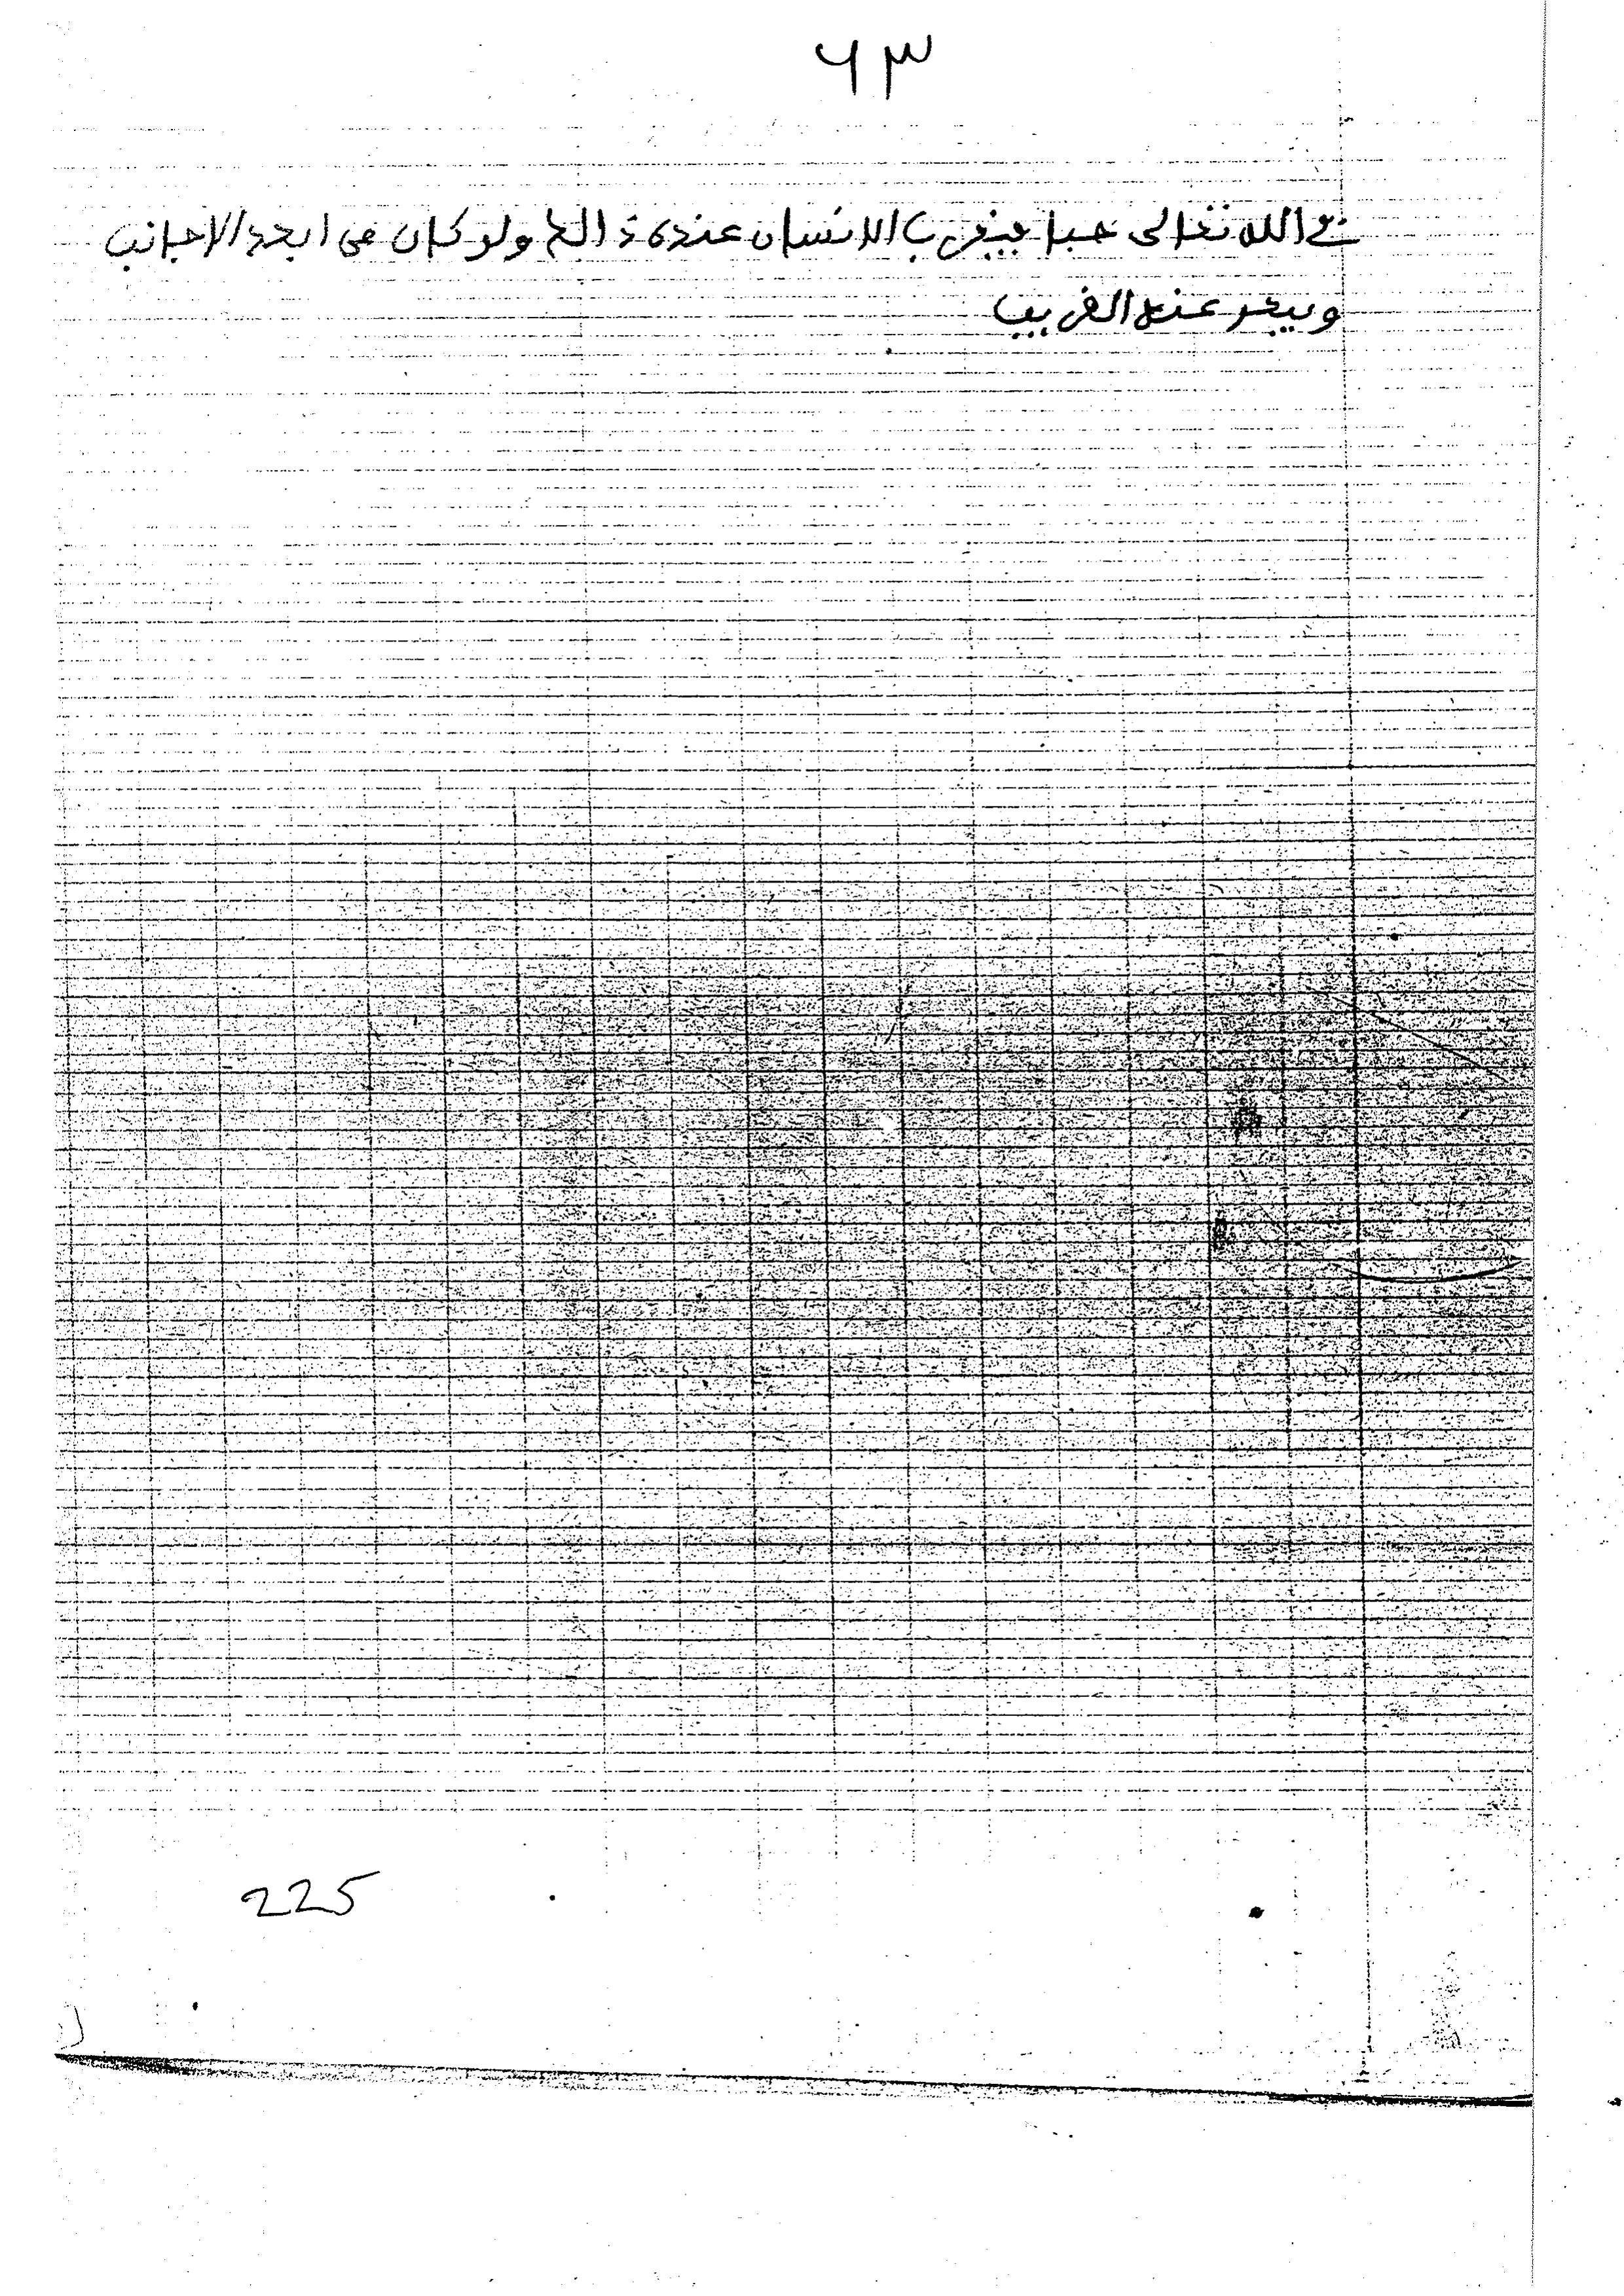 ٦٣
الله تعالى حبا فيقرب الانسان عنده ولو كان من ابعد الاجانب
ويبعد عنده القريب
225